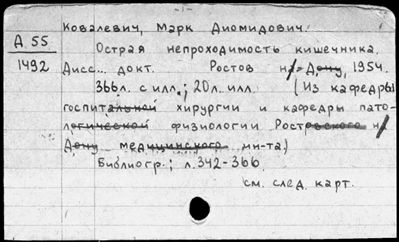 Ковалевич, Марк Диомидович.
Д. 55
1492
Острая непроходимость кишечника.
Дисс... докт. Ростов н/Дону, 1954.
366л. с илл.; 20л. илл. (Из кафедры
госпитальной хирургии и кафедры пато-
логической физиологии Ростовского н/
Дону медицинского ин-та)
Библиогр.; л.342-366
см. след. карт.